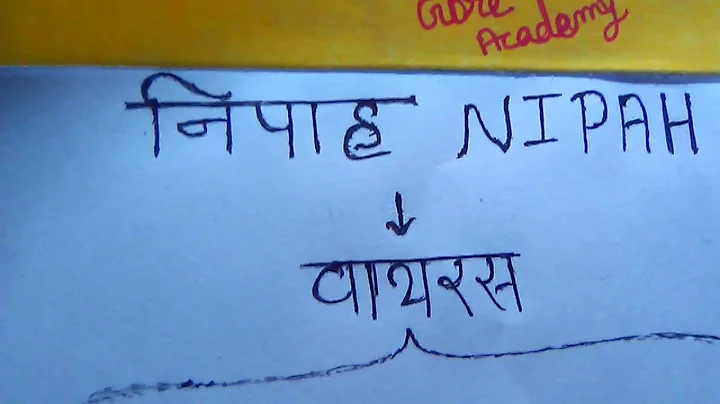 Gore
Academy
निपाह NIPAH
↓
वायरस